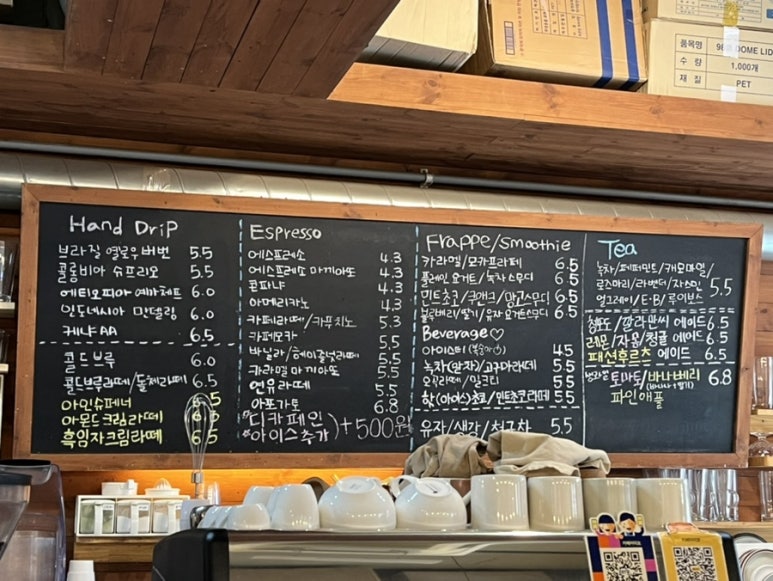 품목명 98Ø DOME LID
수 량 1,000개
재 질 PET
Hand Drip
브라질 옐로우 버번 5.5
콜롬비아 슈프리모 5.5
에티오피아 예가체프 6.0
인도네시아 만델링 6.0
케냐 AA 6.5
콜드브루 6.0
콜드브루라떼/돌체라떼 6.5
아인슈페너 6.5
아몬드크림라떼
흑임자크림라떼 6.5
Espresso
에스프레소 4.3
에스프레소 마끼아또 4.3
콘파냐 4.3
아메리카노 4.3
카페라떼/카푸치노 5.3
카페모카 5.5
바닐라/헤이즐넛라떼 5.5
카라멜 마끼아또 5.5
연유라떼 5.5
아포가토 6.8
디카페인
아이스추가 ) +500원
Frappe/Smoothie
카라멜/모카프라페 6.5
플레인 요거트/녹차 스무디 6.5
민트초코/쿠앤크/망고스무디 6.5
블루베리/딸기/유자 요거트스무디 6.5
Beverage♡
아이스티 (복숭아) 4.5
녹차(말차)/고구마라떼 5.5
오곡라떼/밀크티 5.5
핫(아이스)초코/민트초코라떼 5.5
유자/생강/천국차 5.5
Tea
녹차/페퍼민트/캐모마일/
로즈마리/라벤더/자스민 5.5
얼그레이/E·B/루이보스
청포도/깔라만씨 에이드 6.5
레몬/자몽/청귤 에이드 6.5
패션후르츠 에이드 6.5
생과일 토마토/바나베리 6.8
(바나나+딸기)
파인애플